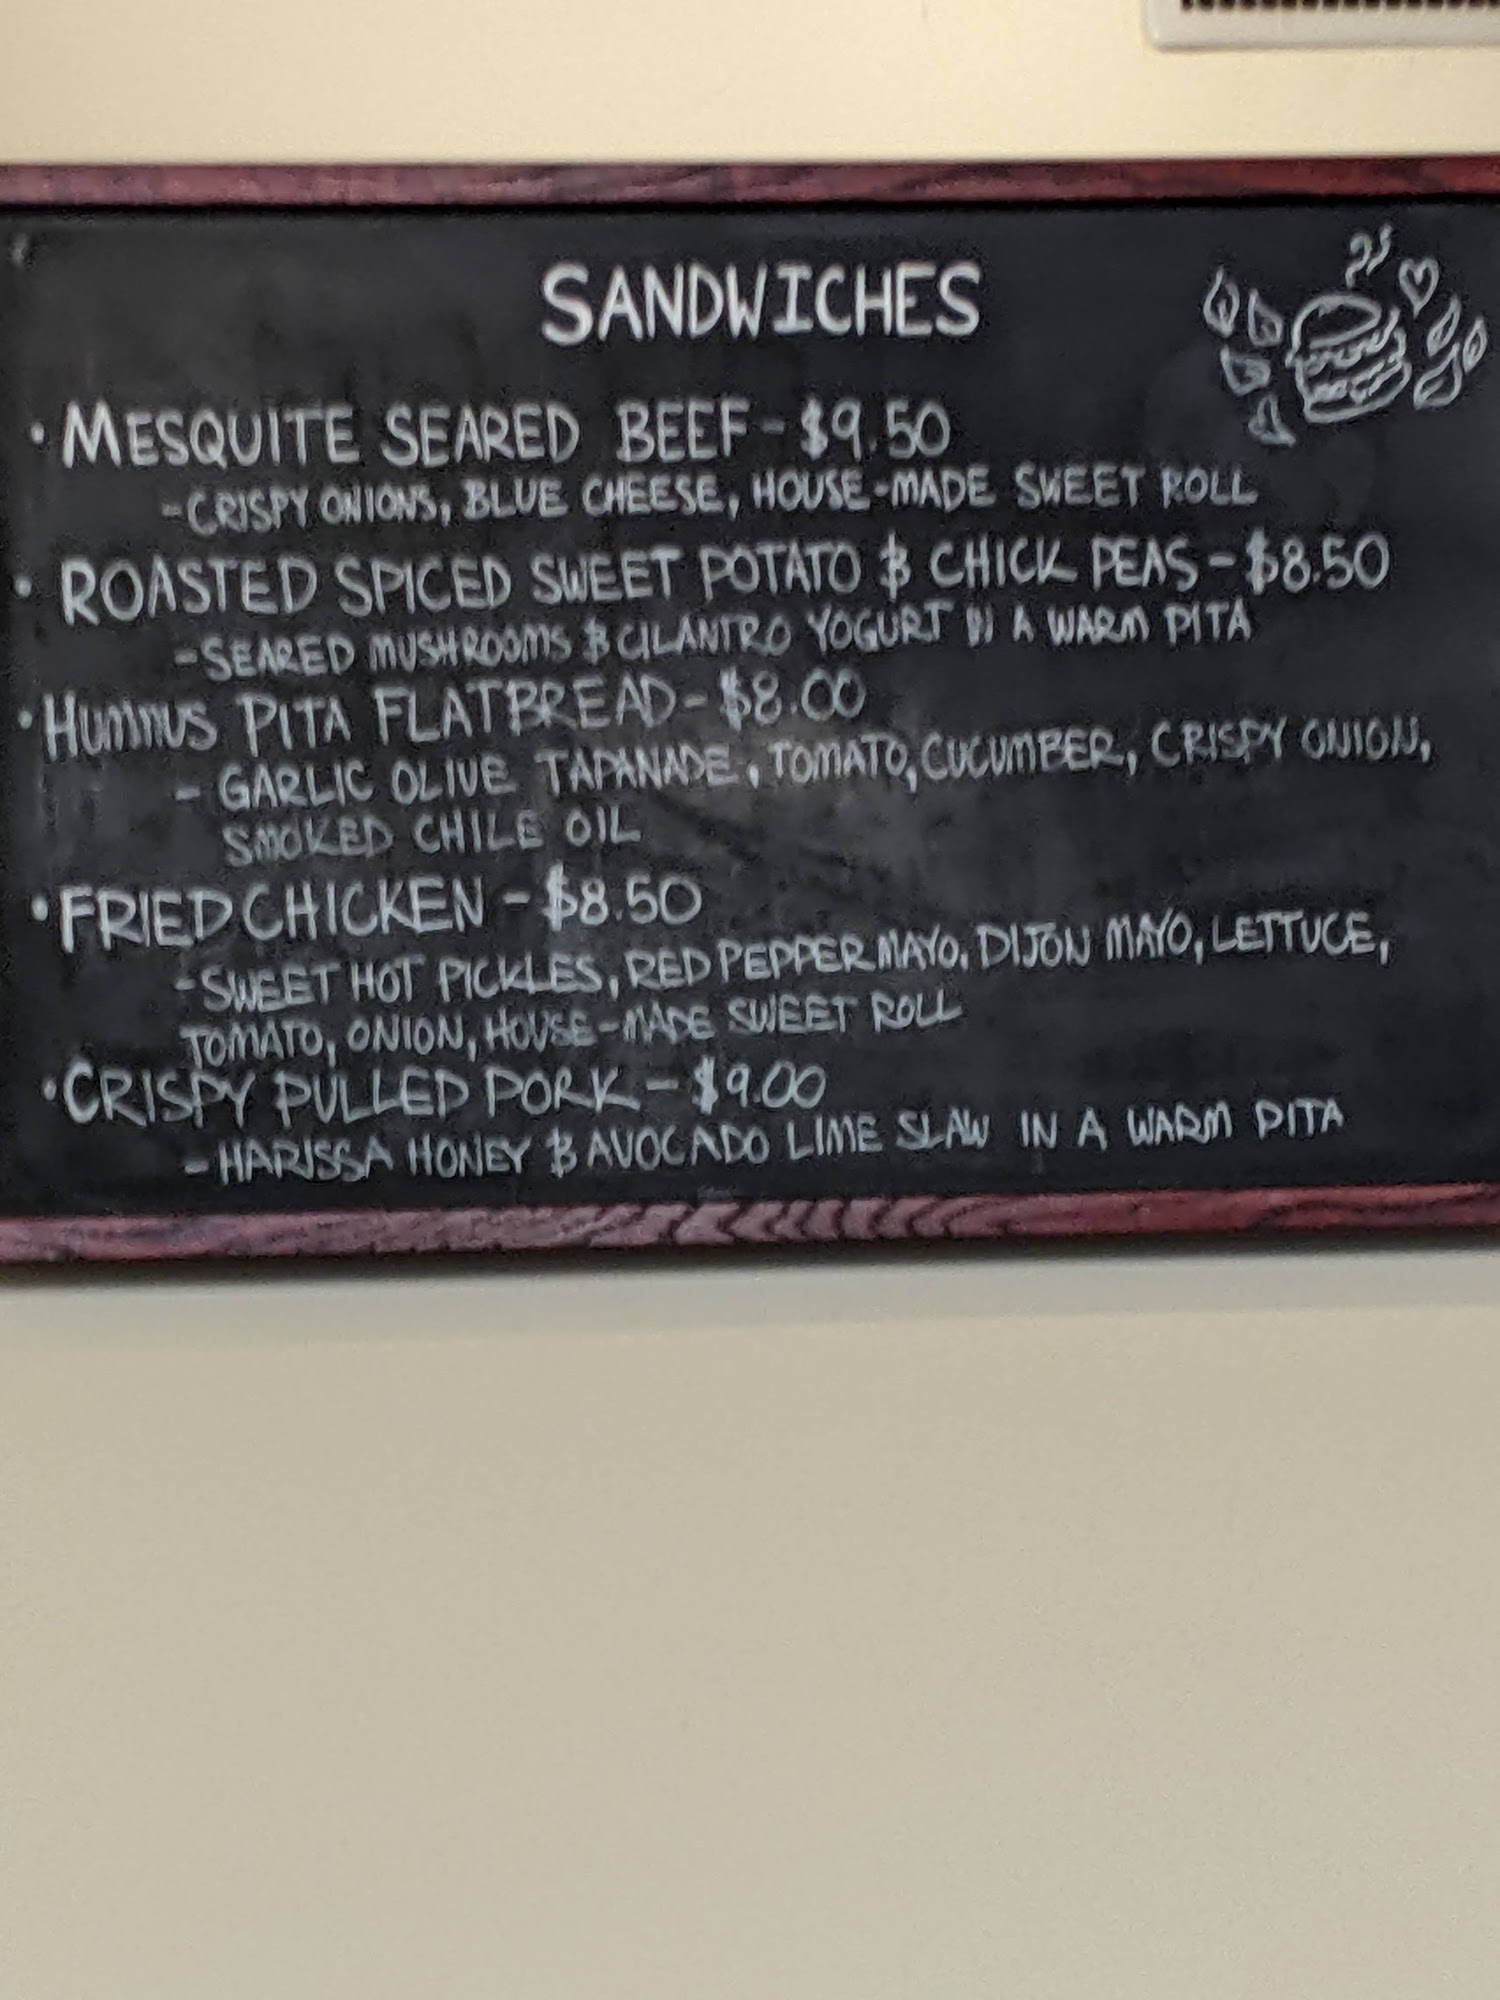 SANDWICHES
• MESQUITE SEARED BEEF - $9.50
- CRISPY ONIONS, BLUE CHEESE, HOUSE-MADE SWEET ROLL
• ROASTED SPICED SWEET POTATO & CHICK PEAS - $8.50
- SEARED MUSHROOMS & CILANTRO YOGURT IN A WARM PITA
• HUMMUS PITA FLATBREAD - $8.00
- GARLIC OLIVE TAPANADE, TOMATO, CUCUMBER, CRISPY ONION,
SMOKED CHILE OIL
• FRIED CHICKEN - $8.50
- SWEET HOT PICKLES, RED PEPPER MAYO, DIJON MAYO, LETTUCE,
TOMATO, ONION, HOUSE-MADE SWEET ROLL
• CRISPY PULLED PORK - $9.00
- HARISSA HONEY & AVOCADO LIME SLAW IN A WARM PITA